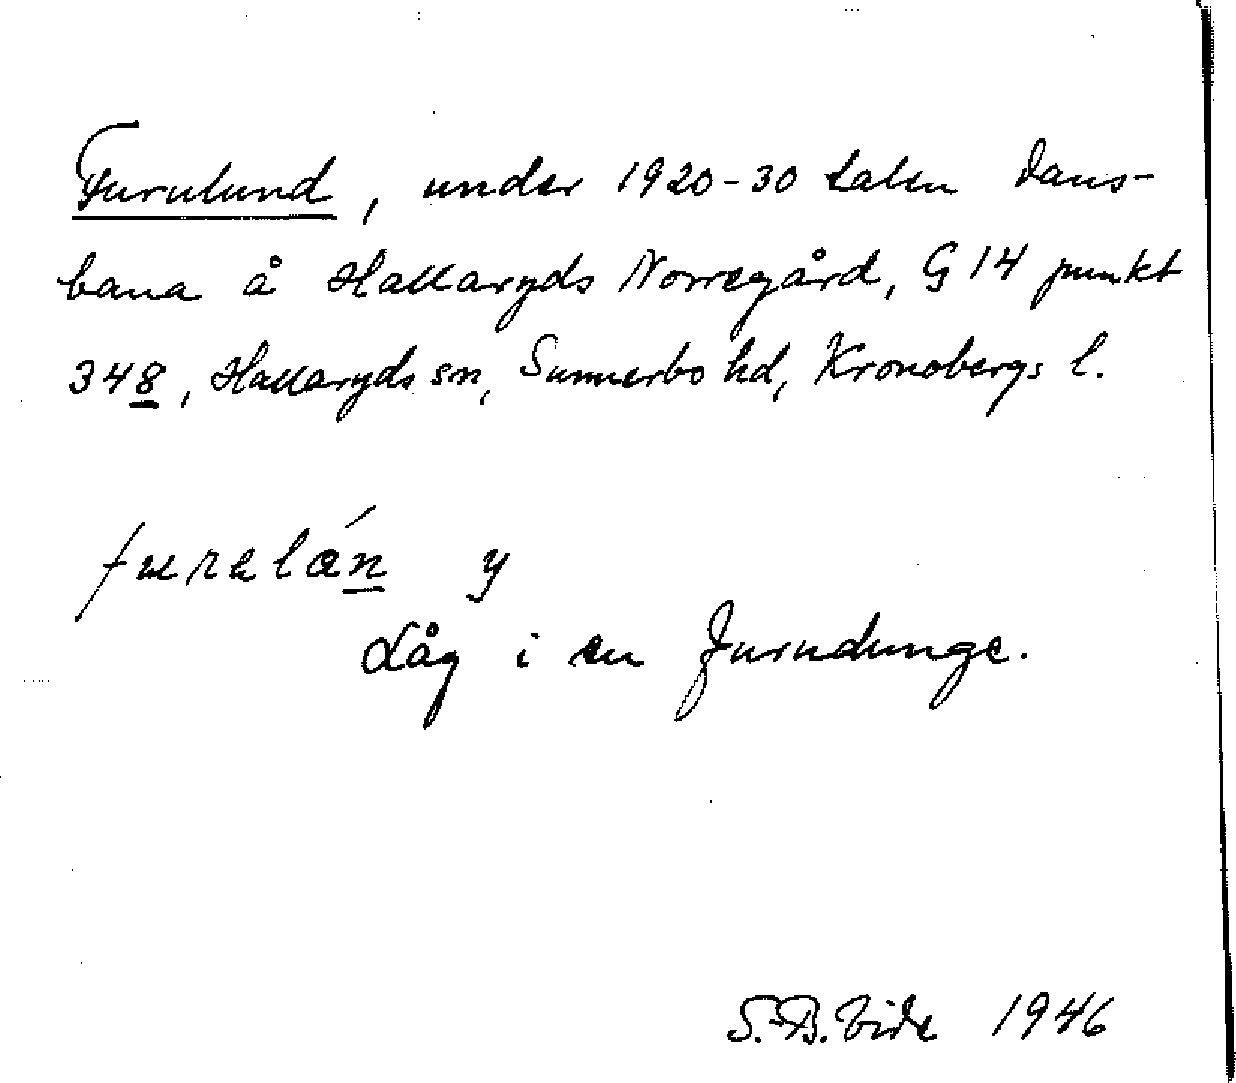 Furulund, under 1920-30 talen dans-
bana å Hallaryds Norregård, G 14 punkt
348, Hallaryds sn, Sunnerbo hd, Kronobergs l.
y
Låg i en furudunge.
S.-B. Vide 1946